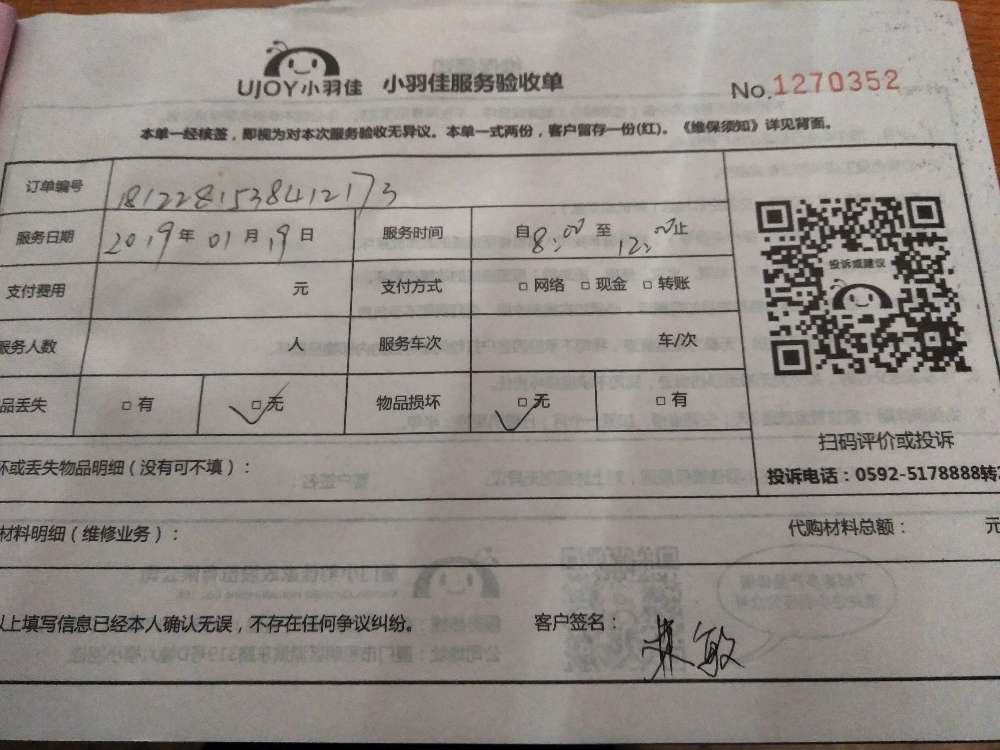 UJOY小羽佳 小羽佳服务验收单 No.1270352
本单一经核签，即视为对本次服务验收无异议。本单一式两份，客户留存一份(红)。《维保须知》详见背面。
订单编号 1812281538412173
服务日期 2019年01月19日 服务时间 自8:00至12:00止
投诉或建议
支付费用 元 支付方式 □网络 □现金 □转账
服务人数 人 服务车次 车/次
品丢失 □有 □无 物品损坏 □无 □有
扫码评价或投诉
坏或丢失物品明细（没有可不填）：
投诉电话：0592-5178888转
材料明细（维修业务）： 代购材料总额： 元
以上填写信息已经本人确认无误，不存在任何争议纠纷。 客户签名： 林敏